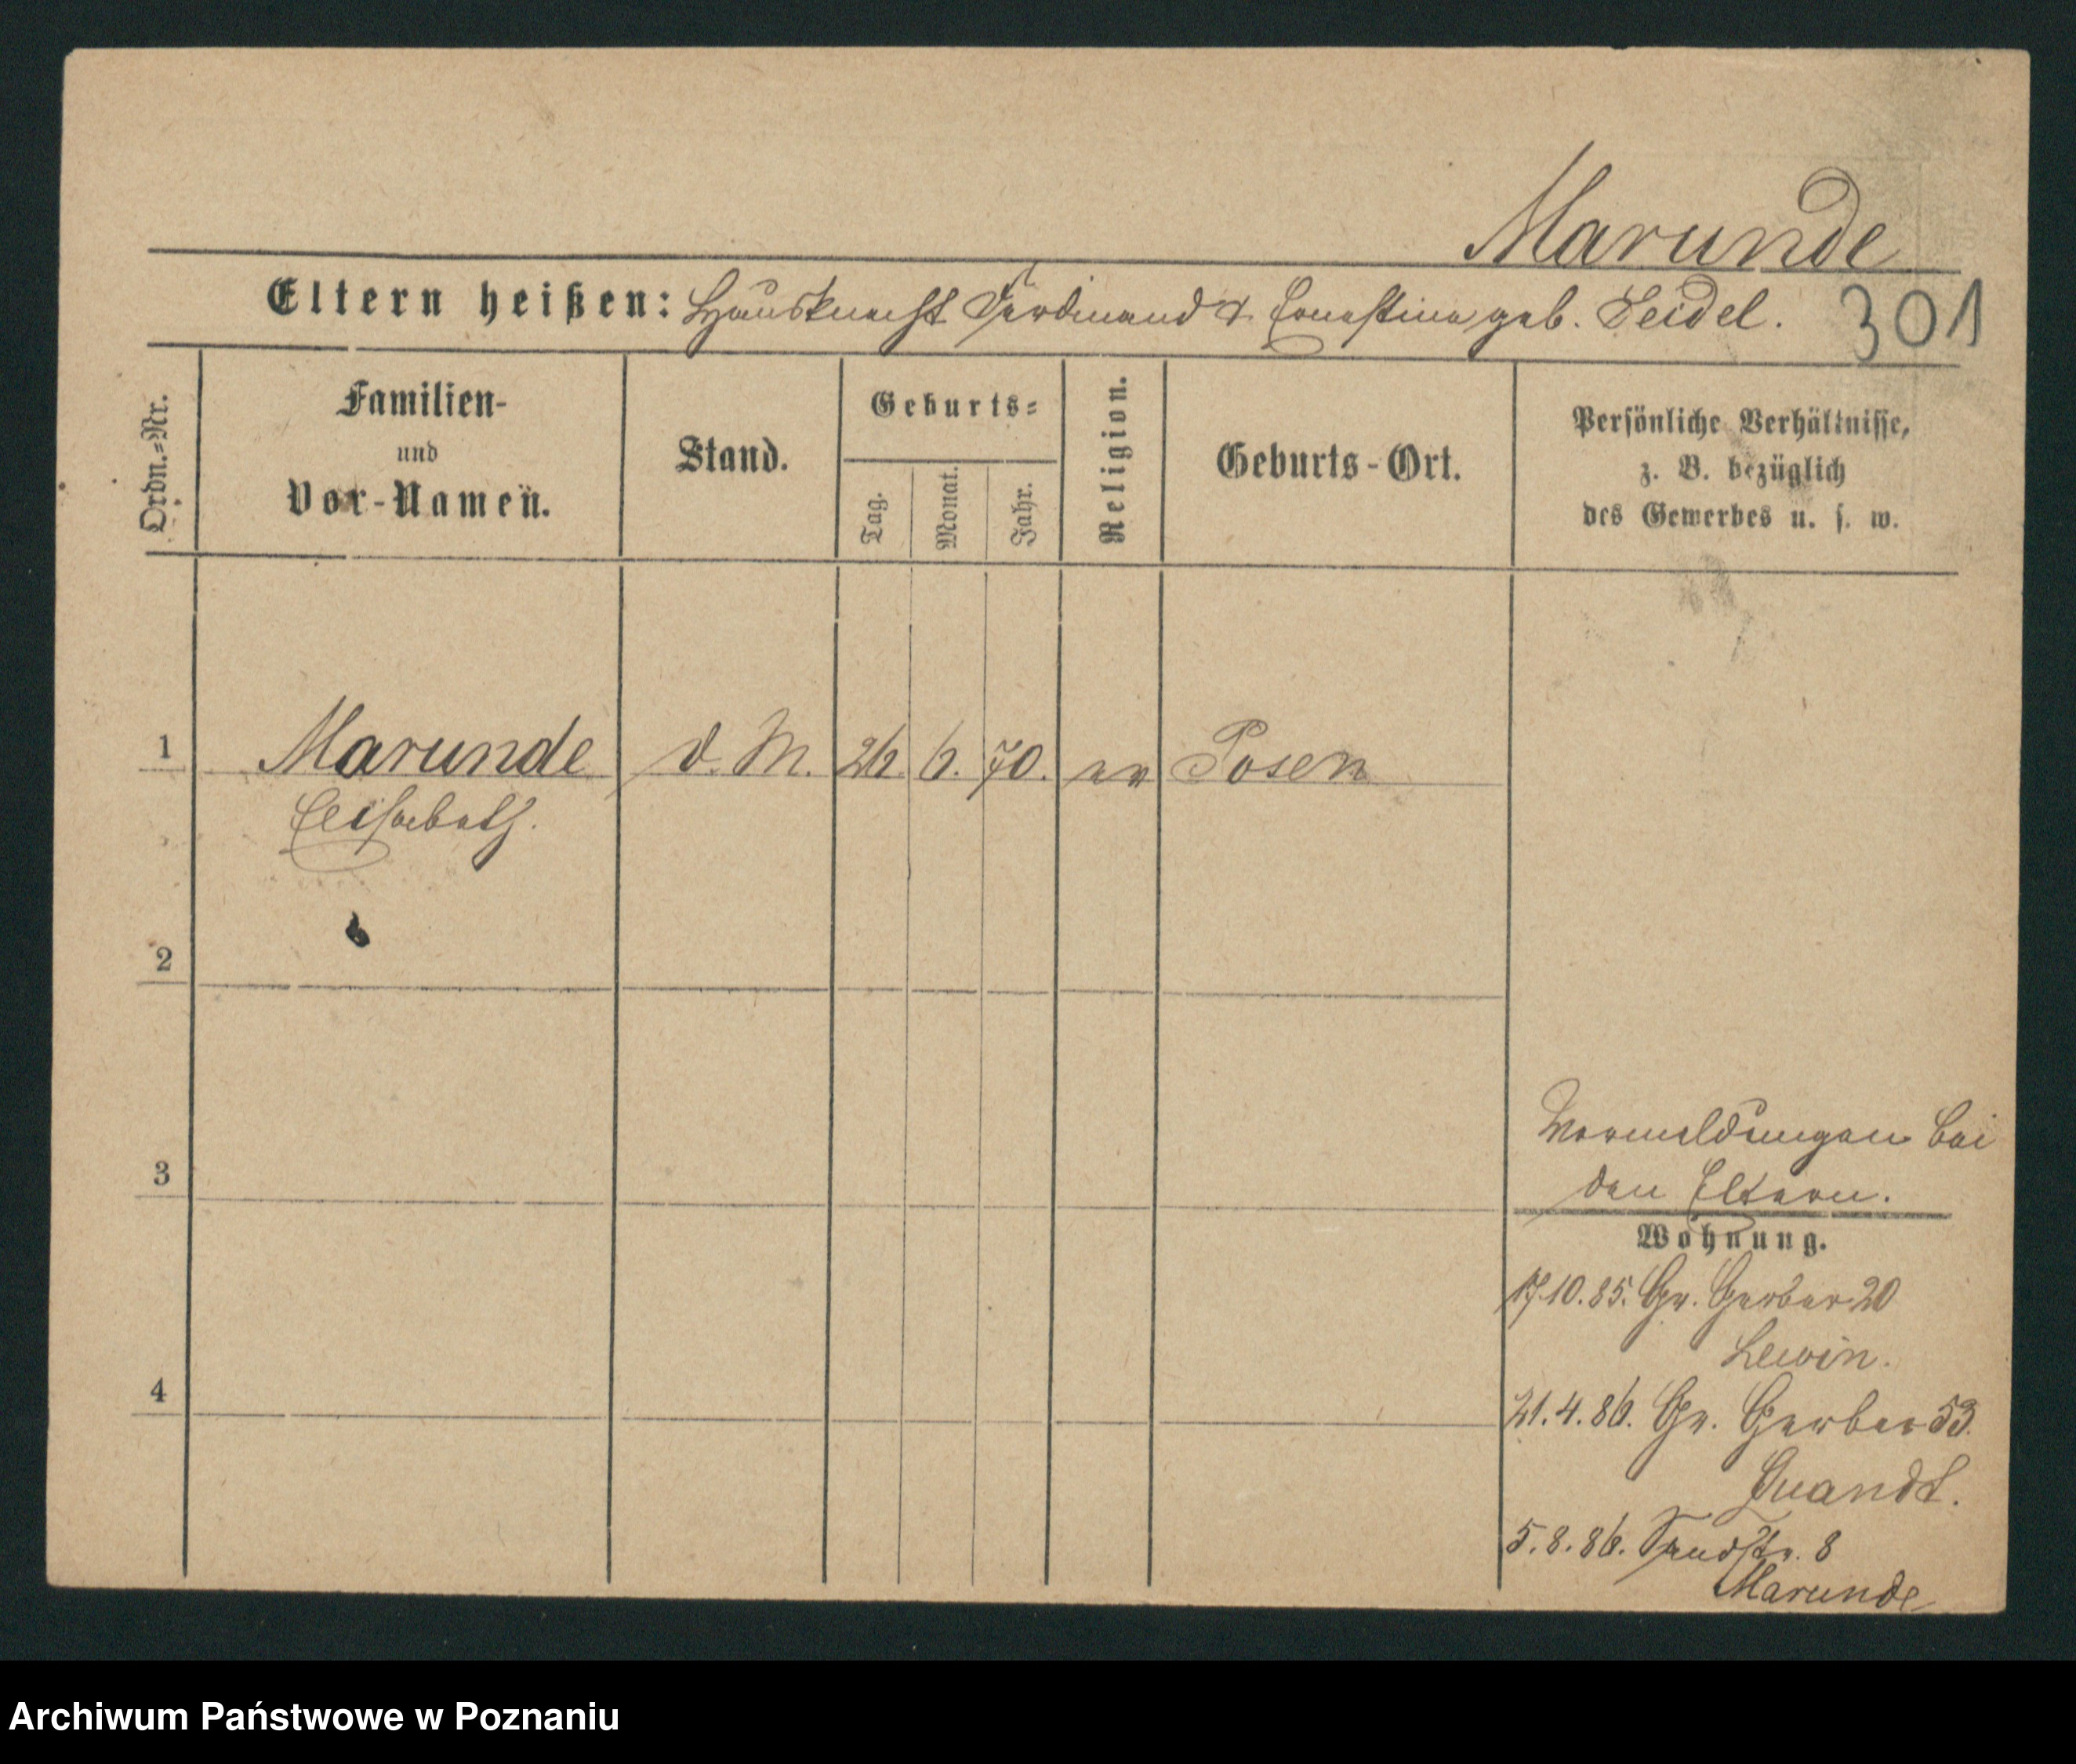 Marunde
Eltern heißen: Hausknecht Ferdinand & Ernestine geb. Seidel. 301
Ordn.=Nr.
Familien-
und
Vor-Namen.
Stand.
Geburts=
Tag.
Monat.
Jahr.
Religion.
Geburts-Ort.
Persönliche Verhältnisse,
z. B. bezüglich
des Gewerbes u. s. w.
1 Marunde d. M. 26. 6. 70. ev Posen
Elisabeth.
2
3
4
Vormeldungen bei
den Eltern.
Wohnung.
17.10.85. Gr. Gerber 20
Lewin.
21.4.86. Gr. Gerber 53.
Quandt.
5.8.86. Sandstr. 8
Marunde
Archiwum Państwowe w Poznaniu